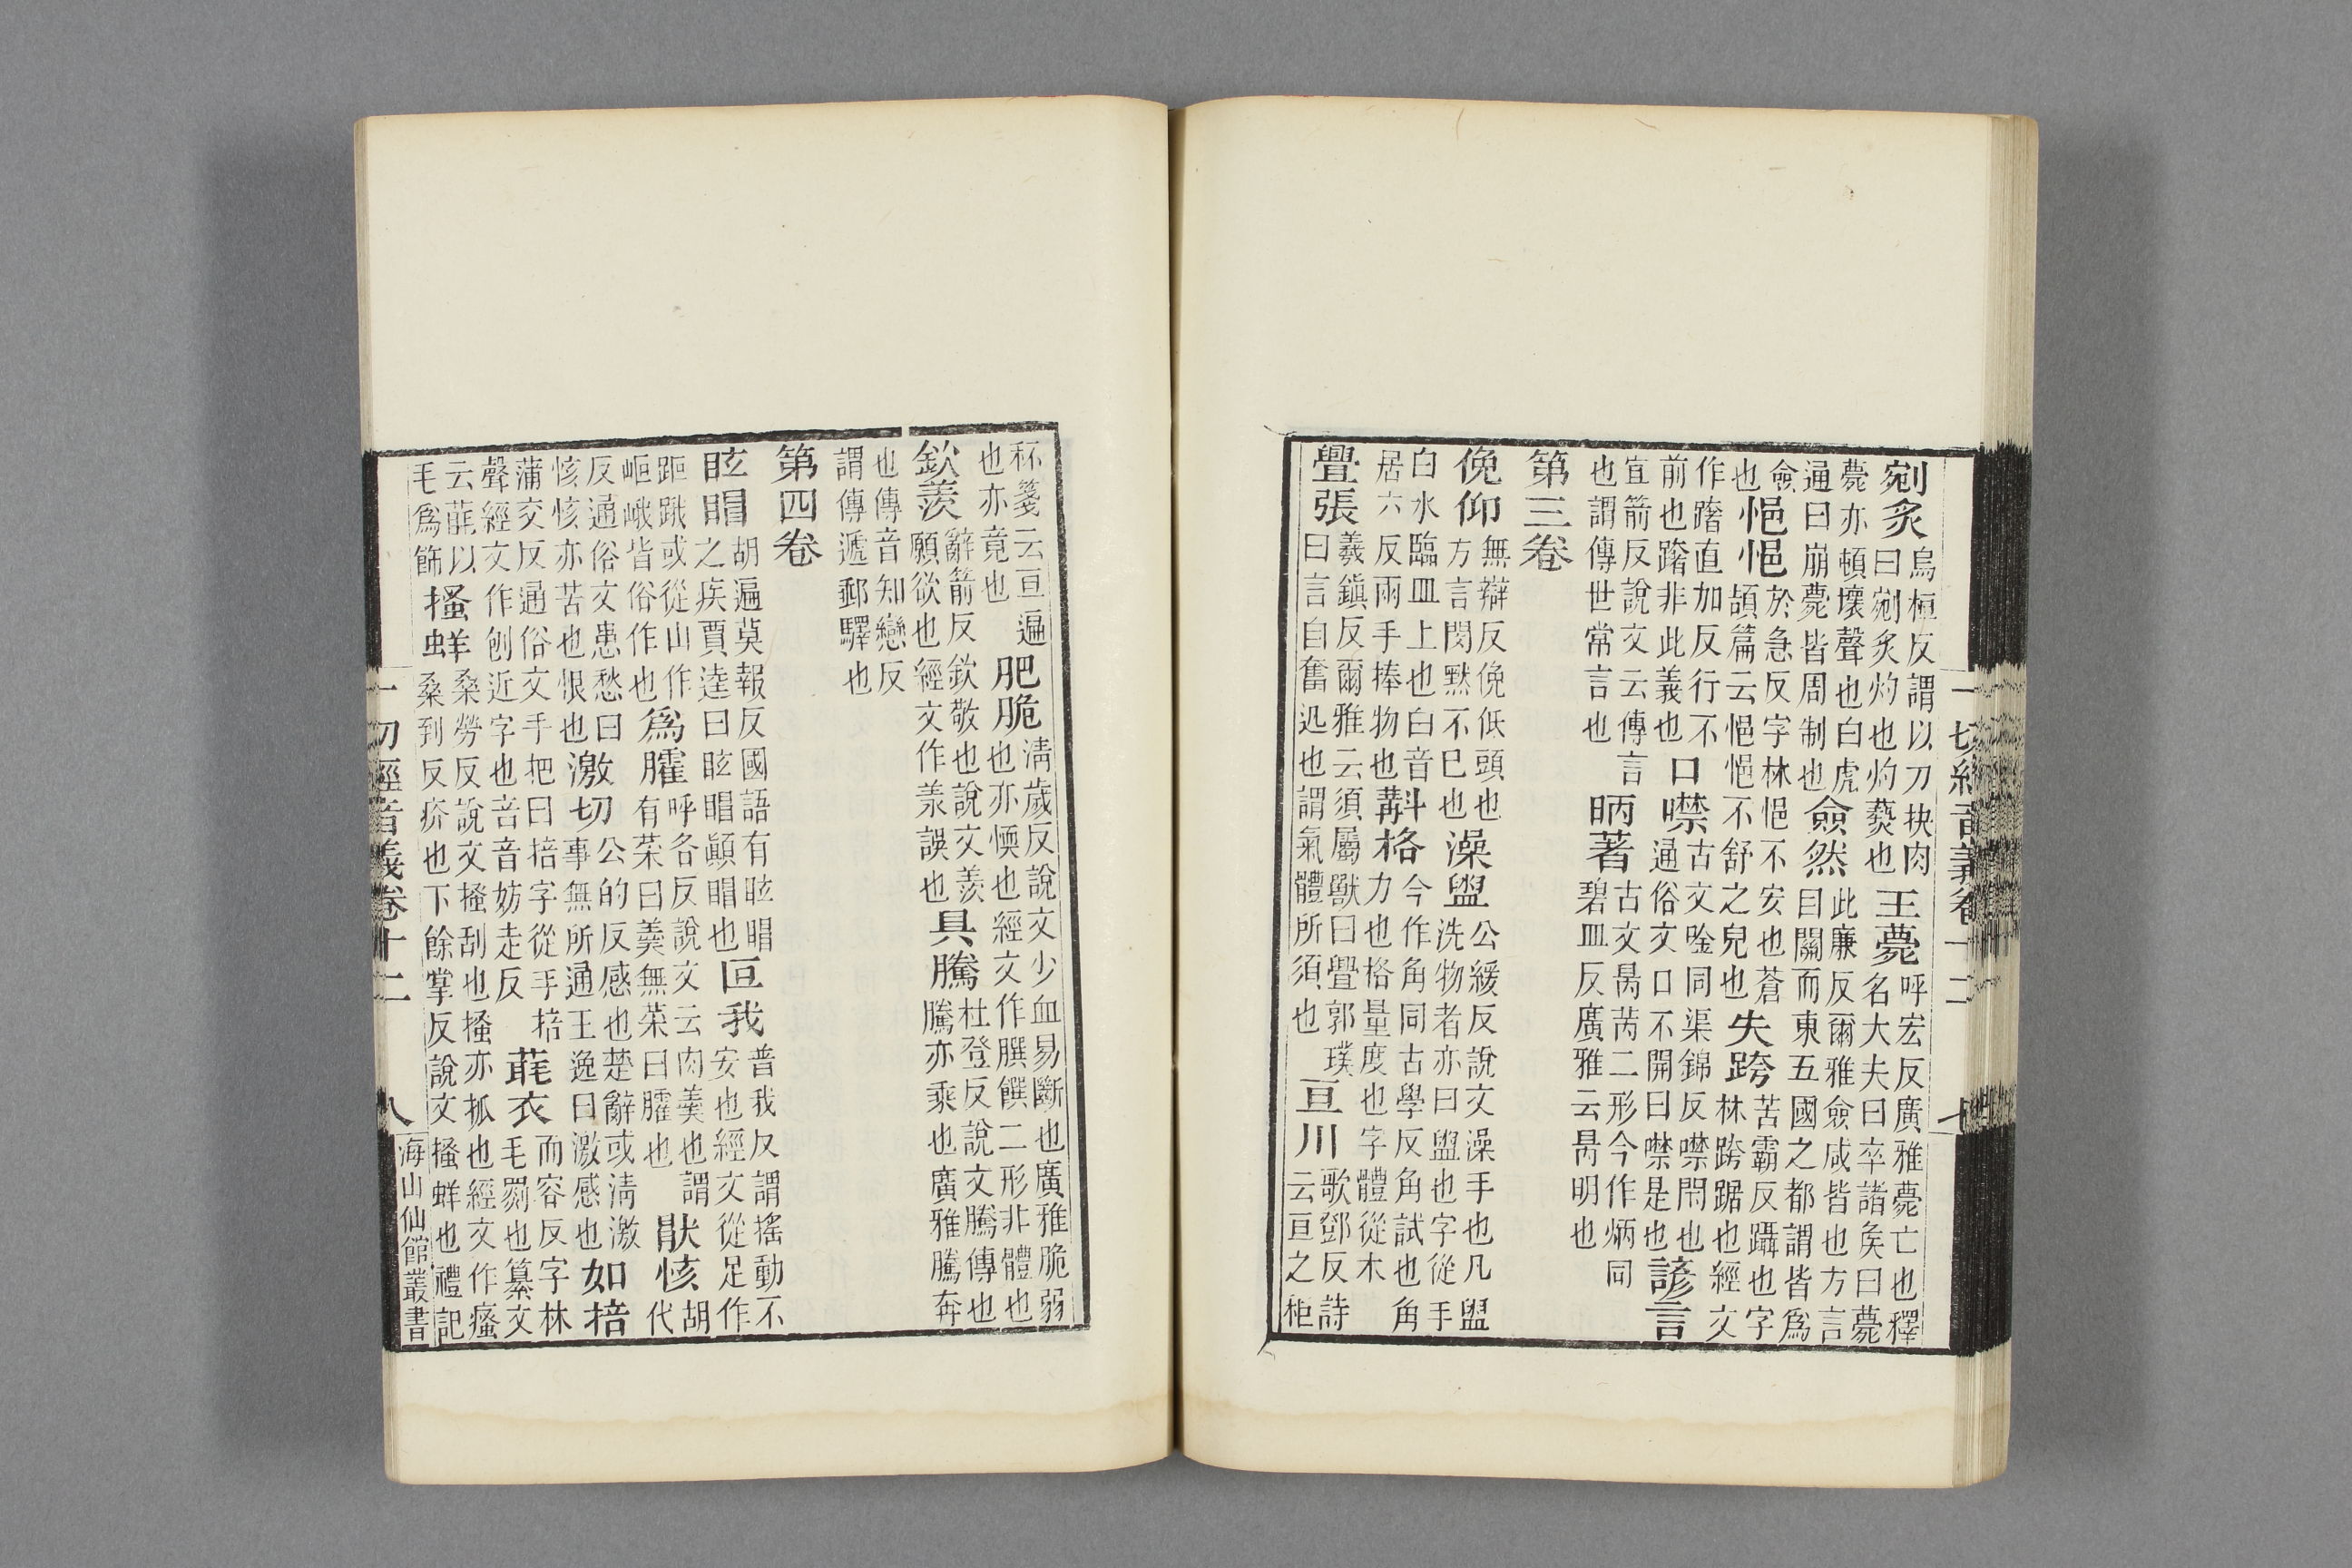 剜炙烏桓反謂以刀抉肉曰剜炙灼也灼爇也王薨呼宏反廣雅薨亡也釋名大夫曰卒諸矦曰薨
薨亦頓壞聲也白虎通曰崩薨皆周制也僉然此廉反爾雅僉咸皆也方言自關而東五國之都謂皆爲
僉也悒悒於急反字林悒不安也蒼頡篇云悒悒不舒之皃也失跨苦霸反躡也字林跨踞也經文
作躇直加反行不前也躇非此義也口噤古文唫同渠錦反噤閇也通俗文口不開曰噤是也諺言
宜箭反說文云傳言也謂傳世常言也昞著古文昺苪二形今作炳同碧皿反廣雅云昺明也
第三卷
俛仰無辯反俛低頭也方言閔默不巳也澡盥公緩反說文澡手也凡盥洗物者亦曰盥也字從手
臼水臨皿上也臼音居六反兩手捧物也斠格今作角同古學反角試也角力也格量度也字體從木
舋張羲鎭反爾雅云須屬獸曰舋郭璞曰言自奮迅也謂氣體所須也亘川歌鄧反詩云亘之秬
一切經音義卷十二 七
秠箋云亘遍也亦竟也肥脆清歲反說文少血易斷也廣雅脆弱也亦愞也經文作膬饌二形非體也
欽羨辭箭反欽敬也說文羨願欲也經文作羕誤也具騰杜登反說文騰傳也騰亦乘也廣雅騰奔
也傳音知戀反謂傳遞郵驛也
第四卷
眩睸胡遍莫報反國語有眩睸之疾賈逵曰眩睸顚睸也叵我普我反謂搖動不安也經文從足作
距䟪或從山作岠峨皆俗作也爲臛呼各反說文云肉羹也謂有菜曰羹無菜曰臛也猒㤥胡代
反通俗文患愁曰㤥㤥亦苦也恨也激切公的反感也楚辭或清激事無所通王逸曰激感也如掊
蒲交反通俗文手把曰掊字從手咅聲經文作刨近字也咅音妨走反衣而容反字林毛罽也纂文
云以毛爲飾搔蛘桑勞反說文搔刮也搔亦抓也經文作瘙桑到反疥也下餘掌反說文搔蛘也禮記
一切經音義卷十二 八 海山仙館叢書